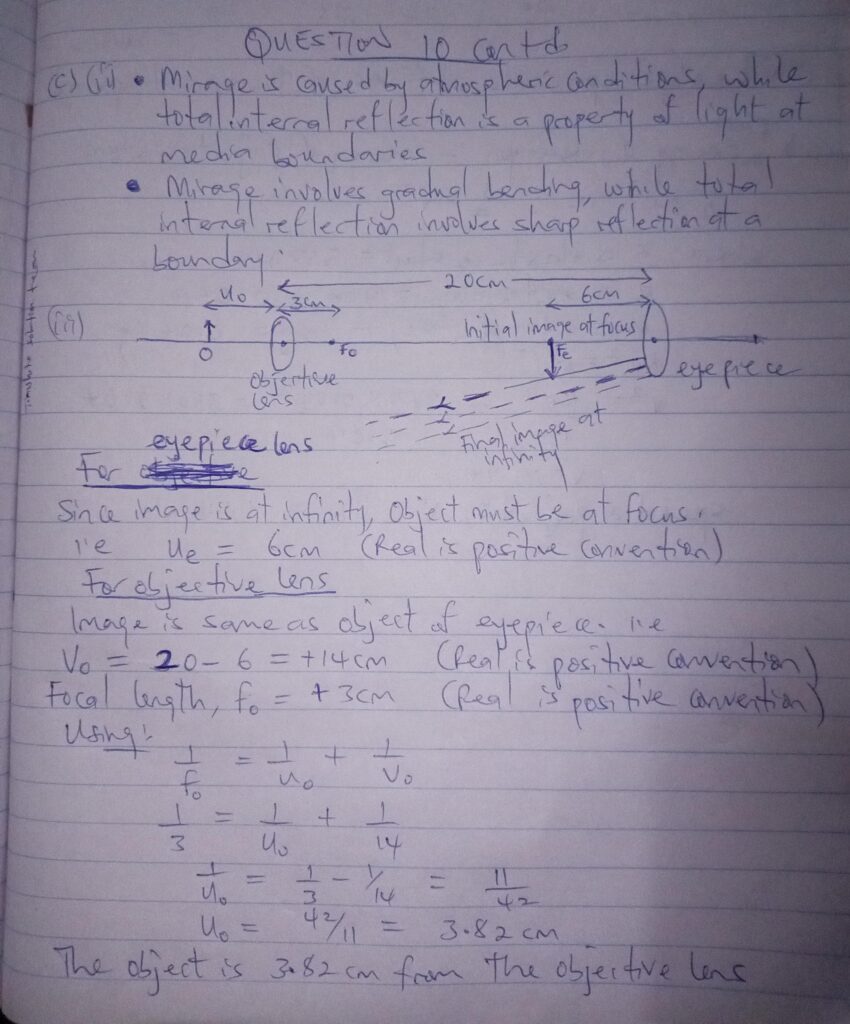 QUESTION 10 Contd
(c) (ii) • Mirage is caused by atmospheric conditions, while
total internal reflection is a property of light at
media boundaries
• Mirage involves gradual bending, while total
internal reflection involves sharp reflection at a
boundary.
20cm
u₀ 3cm 6cm
(iii) Initial image at focus
O F₀ Fe
objective eyepiece
lens
Final image at
infinity
eyepiece lens
For
Since image is at infinity, object must be at focus.
i.e Ue = 6cm (Real is positive convention)
For objective lens
Image is same as object of eyepiece. i.e
V₀ = 20 - 6 = +14cm (Real is positive convention)
Focal length, f₀ = +3cm (Real is positive convention)
Using:
1/f₀ = 1/u₀ + 1/V₀
1/3 = 1/u₀ + 1/14
1/u₀ = 1/3 - 1/14 = 11/42
u₀ = 42/11 = 3.82 cm
The object is 3.82 cm from the objective lens